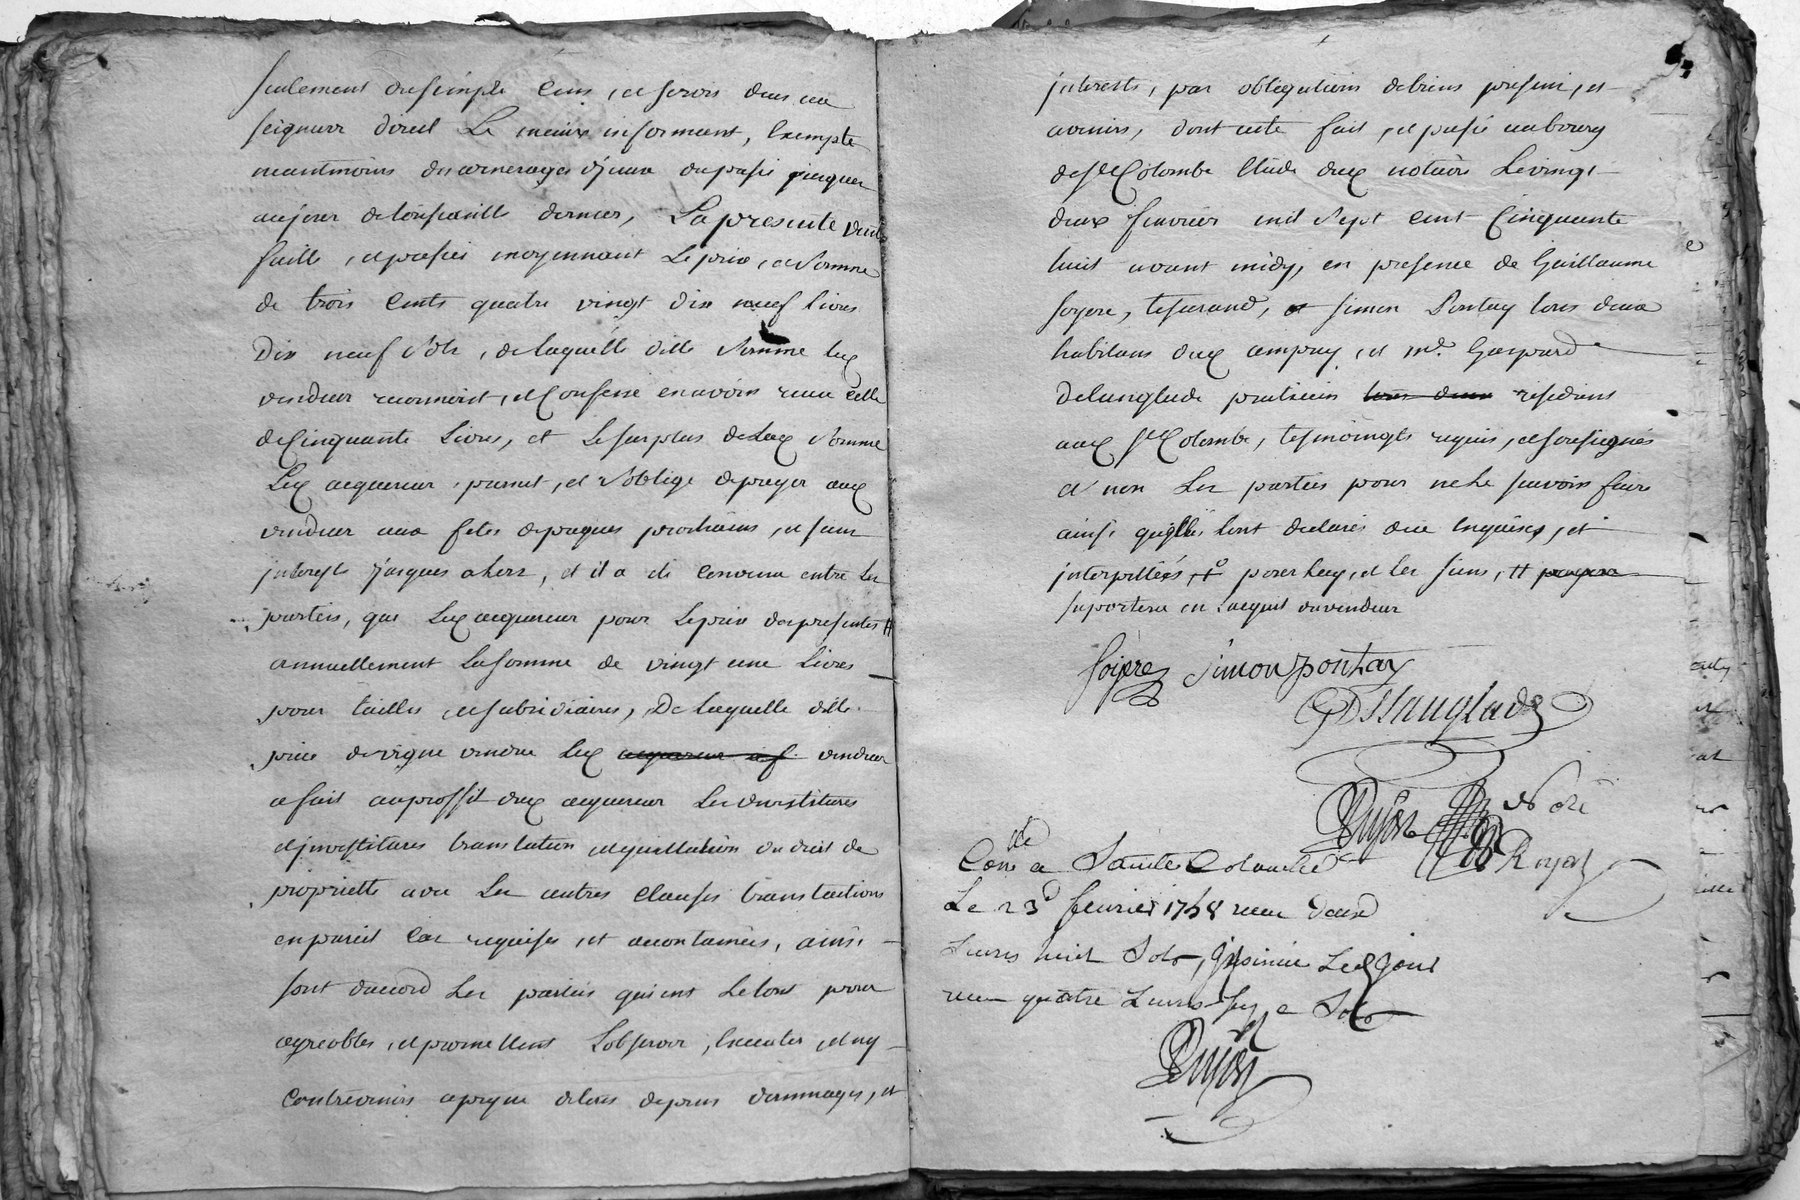 seulement du simple cens, et servis dans une
seigneur direct Le mieux informant, Exempte
neantmoins des arrerages d'jceux du passé jusques
au jour de toussaintt dernier, La presente vente
faitte, et passée moyennant Le prix, et somme
de trois cents quatre vingt dix neuf livres
Dix neuf sols, de laquelle ditte somme led
vendeur reconnoist, et Confesse en avoir receu celle
de Cinquante Livres, et Le surplus de lad somme
Led acquereur promet, et s'oblige de payer aud
vendeur aux fetes de paques prochaines, et sans
jnterests jusques a lors, et il a eté convenu entre les
parties, que Led acquereur pour Le prix des presentes #
annuellement La somme de vingt une Livres
pour tailles et subsidiaires, De laquelle ditte
piece de vigne vendue led acquereur a f vendeur
a fait au proffit dud acquereur Les devestitures
et jnvestitures translation et quittation du droit de
proprietté avec Les autres clauses translatives
en pareil Cas requises, et accoutumées, ainsi
sont d'accord Les parties qui ont Le tout pour
agreables, et promettent L'observer, Executer, et n'y
contrevenir a peyne de tous depens dommages, et
jnterests, par obligations de biens presents, et
avenirs, dont acte fait, et passé au bourg
de Ste Colombe Etude dud notaire Le vingt
deux fevrier mil sept cent Cinquante
huit avant midy, en presence de Guillaume
soyere, tisserand, et simon Pontay tous deux
habitans dud ampuy, et Me. Gaspard
Delanglade praticien tous deux residens
aud Ste Colombe, tesmoingts requis, et soussignés
et non Les parties pour ne Le savoir faire
ainsi qu'elles l'ont declaré de ce Enquises, et
jnterpellées, + pour luy, et les siens, # payera
suportera en L'acquit du vendeur
soyere simon pontay
GDslanglade
Dujast Nore
Royal
Conlé a Sainte Colombe
Le 23d fevrier 1758 receu Deux
Livres huit Sols, jnsinué Led Jour
receu quatre Livres Seize Sols
Dujast